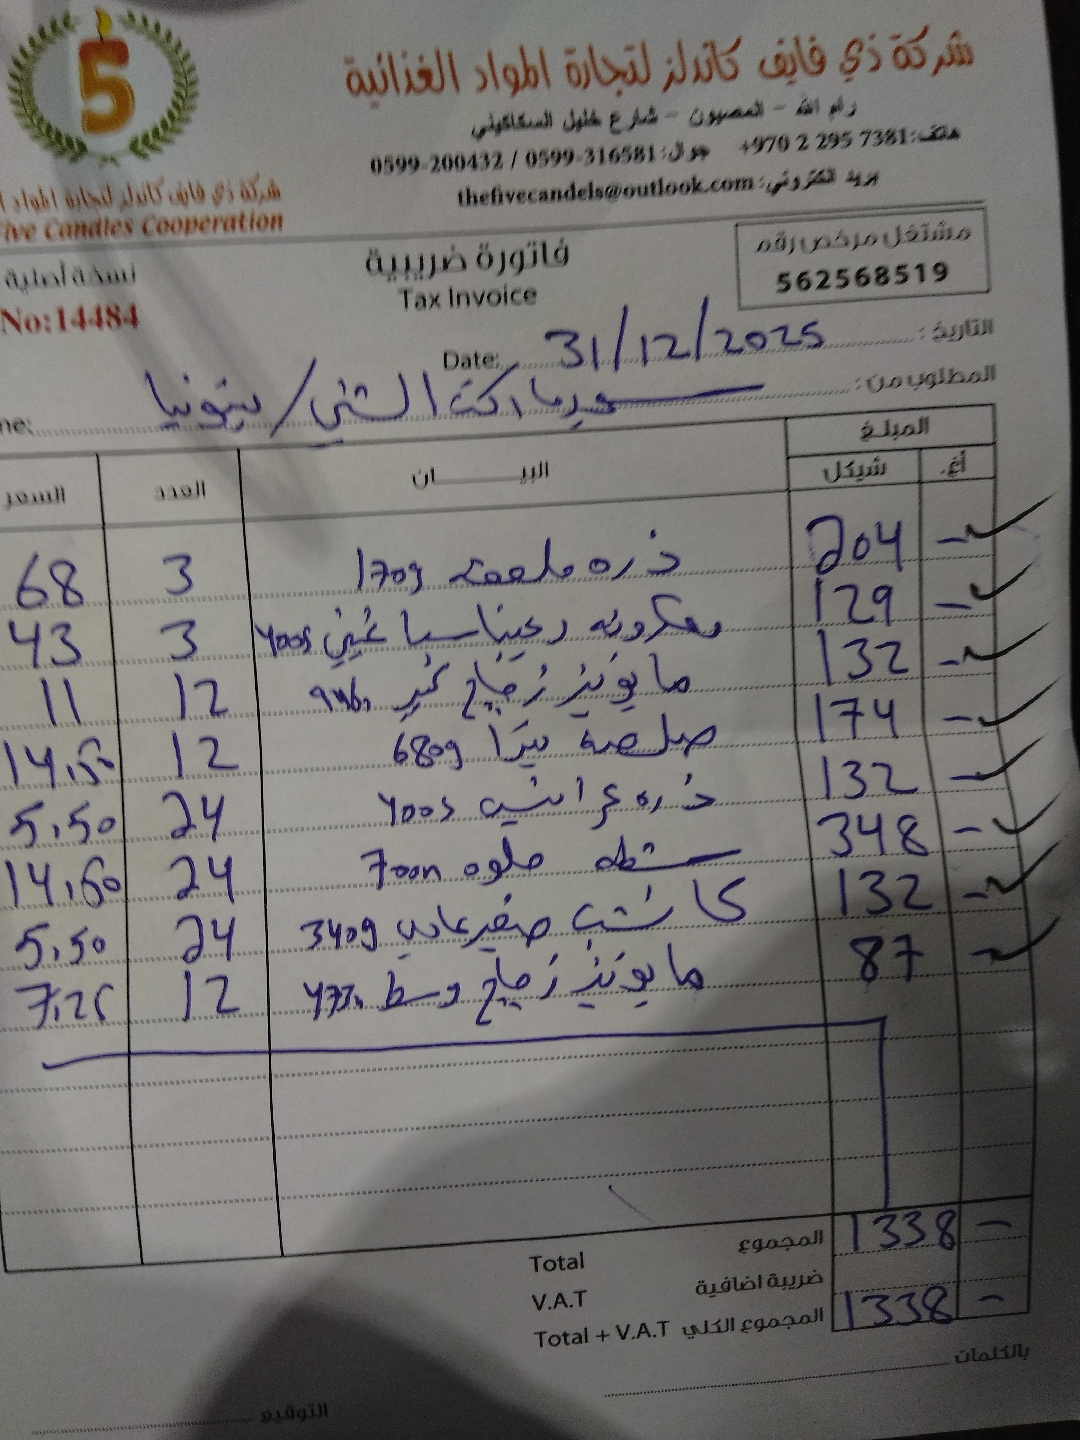 شركة ذي فايف كاندلز لتجارة المواد الغذائية
رام الله - المصيون - شارع خليل السكاكيني
هاتف: +970 2 295 7381 جوال: 0599-316581 / 0599-200432
بريد الكتروني: thefivecandels@outlook.com
5
شركة ذي فايف كاندلز لتجارة المواد
Five Candles Cooperation
مشتغل مرخص رقم
562568519
فاتورة ضريبية
Tax Invoice
نسخة أصلية
No:14484
التاريخ: 31/12/2025 Date:
المطلوب من: سوبرماركت الشني / بيتونيا
المبلغ
أغ. شيكل البيــــــان العدد السعر
- 204 ذره ملعقه 170g 3 68
- 129 معكرونه 400g 3 43
- 132 مايونيز زجاج كبير 946 12 11
- 174 صلصة بيتزا 680g 12 14,50
- 132 ذره 400g 24 5,50
- 348 شطه حلوه 700m 24 14,50
- 132 كاتشب صغير عادي 340g 24 5,50
- 87 مايونيز زجاج وسط 473 12 7,25
Total المجموع 1338 -
V.A.T ضريبة اضافية
Total + V.A.T المجموع الكلي 1338 -
بالكلمات
التوقيع